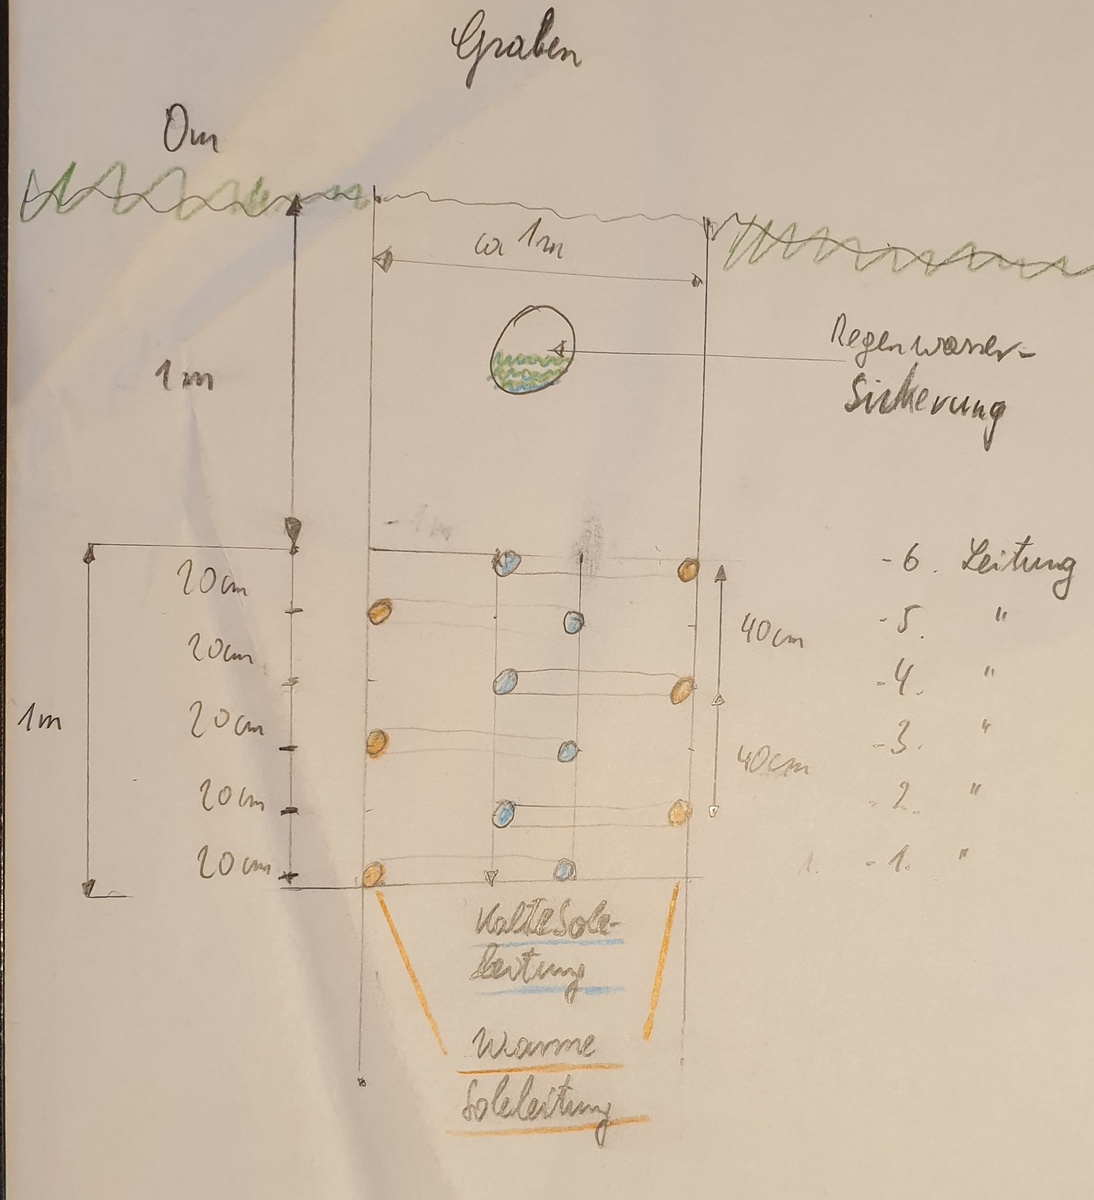 Graben
0m
ca 1m
1m
Regenwasser-
Sickerung
- 1m
20cm
- 6. Leitung
40cm
- 5. "
20cm
- 4. "
1m
20cm
- 3. "
40cm
20cm
- 2. "
20cm
1. - 1. "
Kalte Sole-
leitung
Warme
Soleleitung